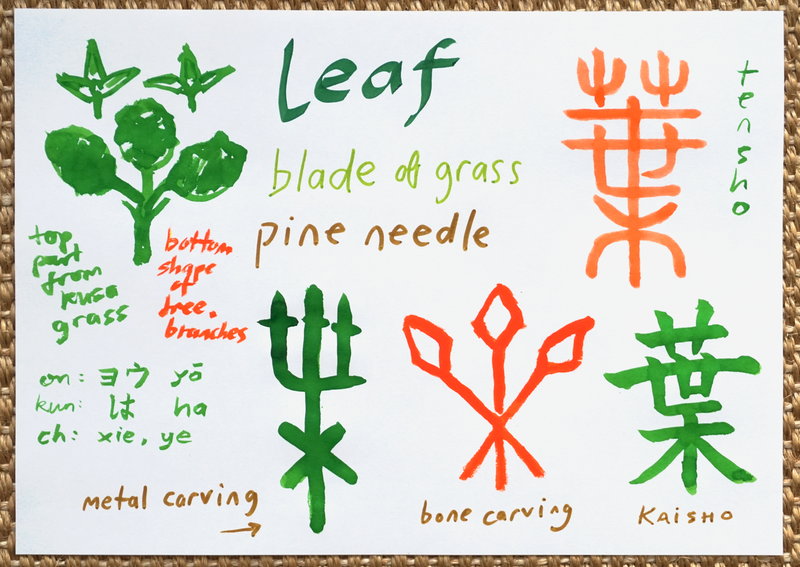 Leaf
blade of grass
pine needle
葉
tensho
top
part
from
kusa
grass
bottom
shape
of
tree.
branches
on: ヨウ yō
kun: は ha
ch: xie, ye
metal carving
→
bone carving
葉
KAISHO